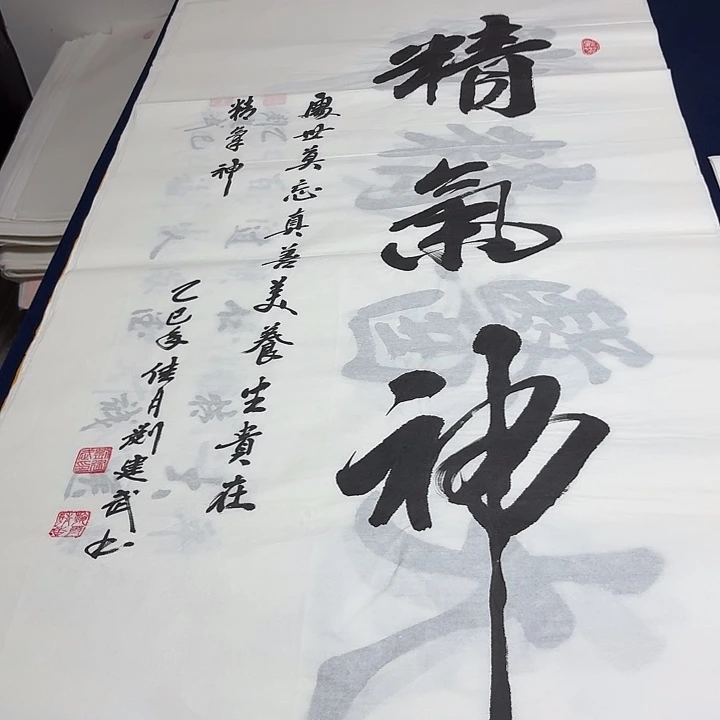 精氣神
處世莫忘真善美養生貴在
精氣神
乙巳年佳月劉建武书